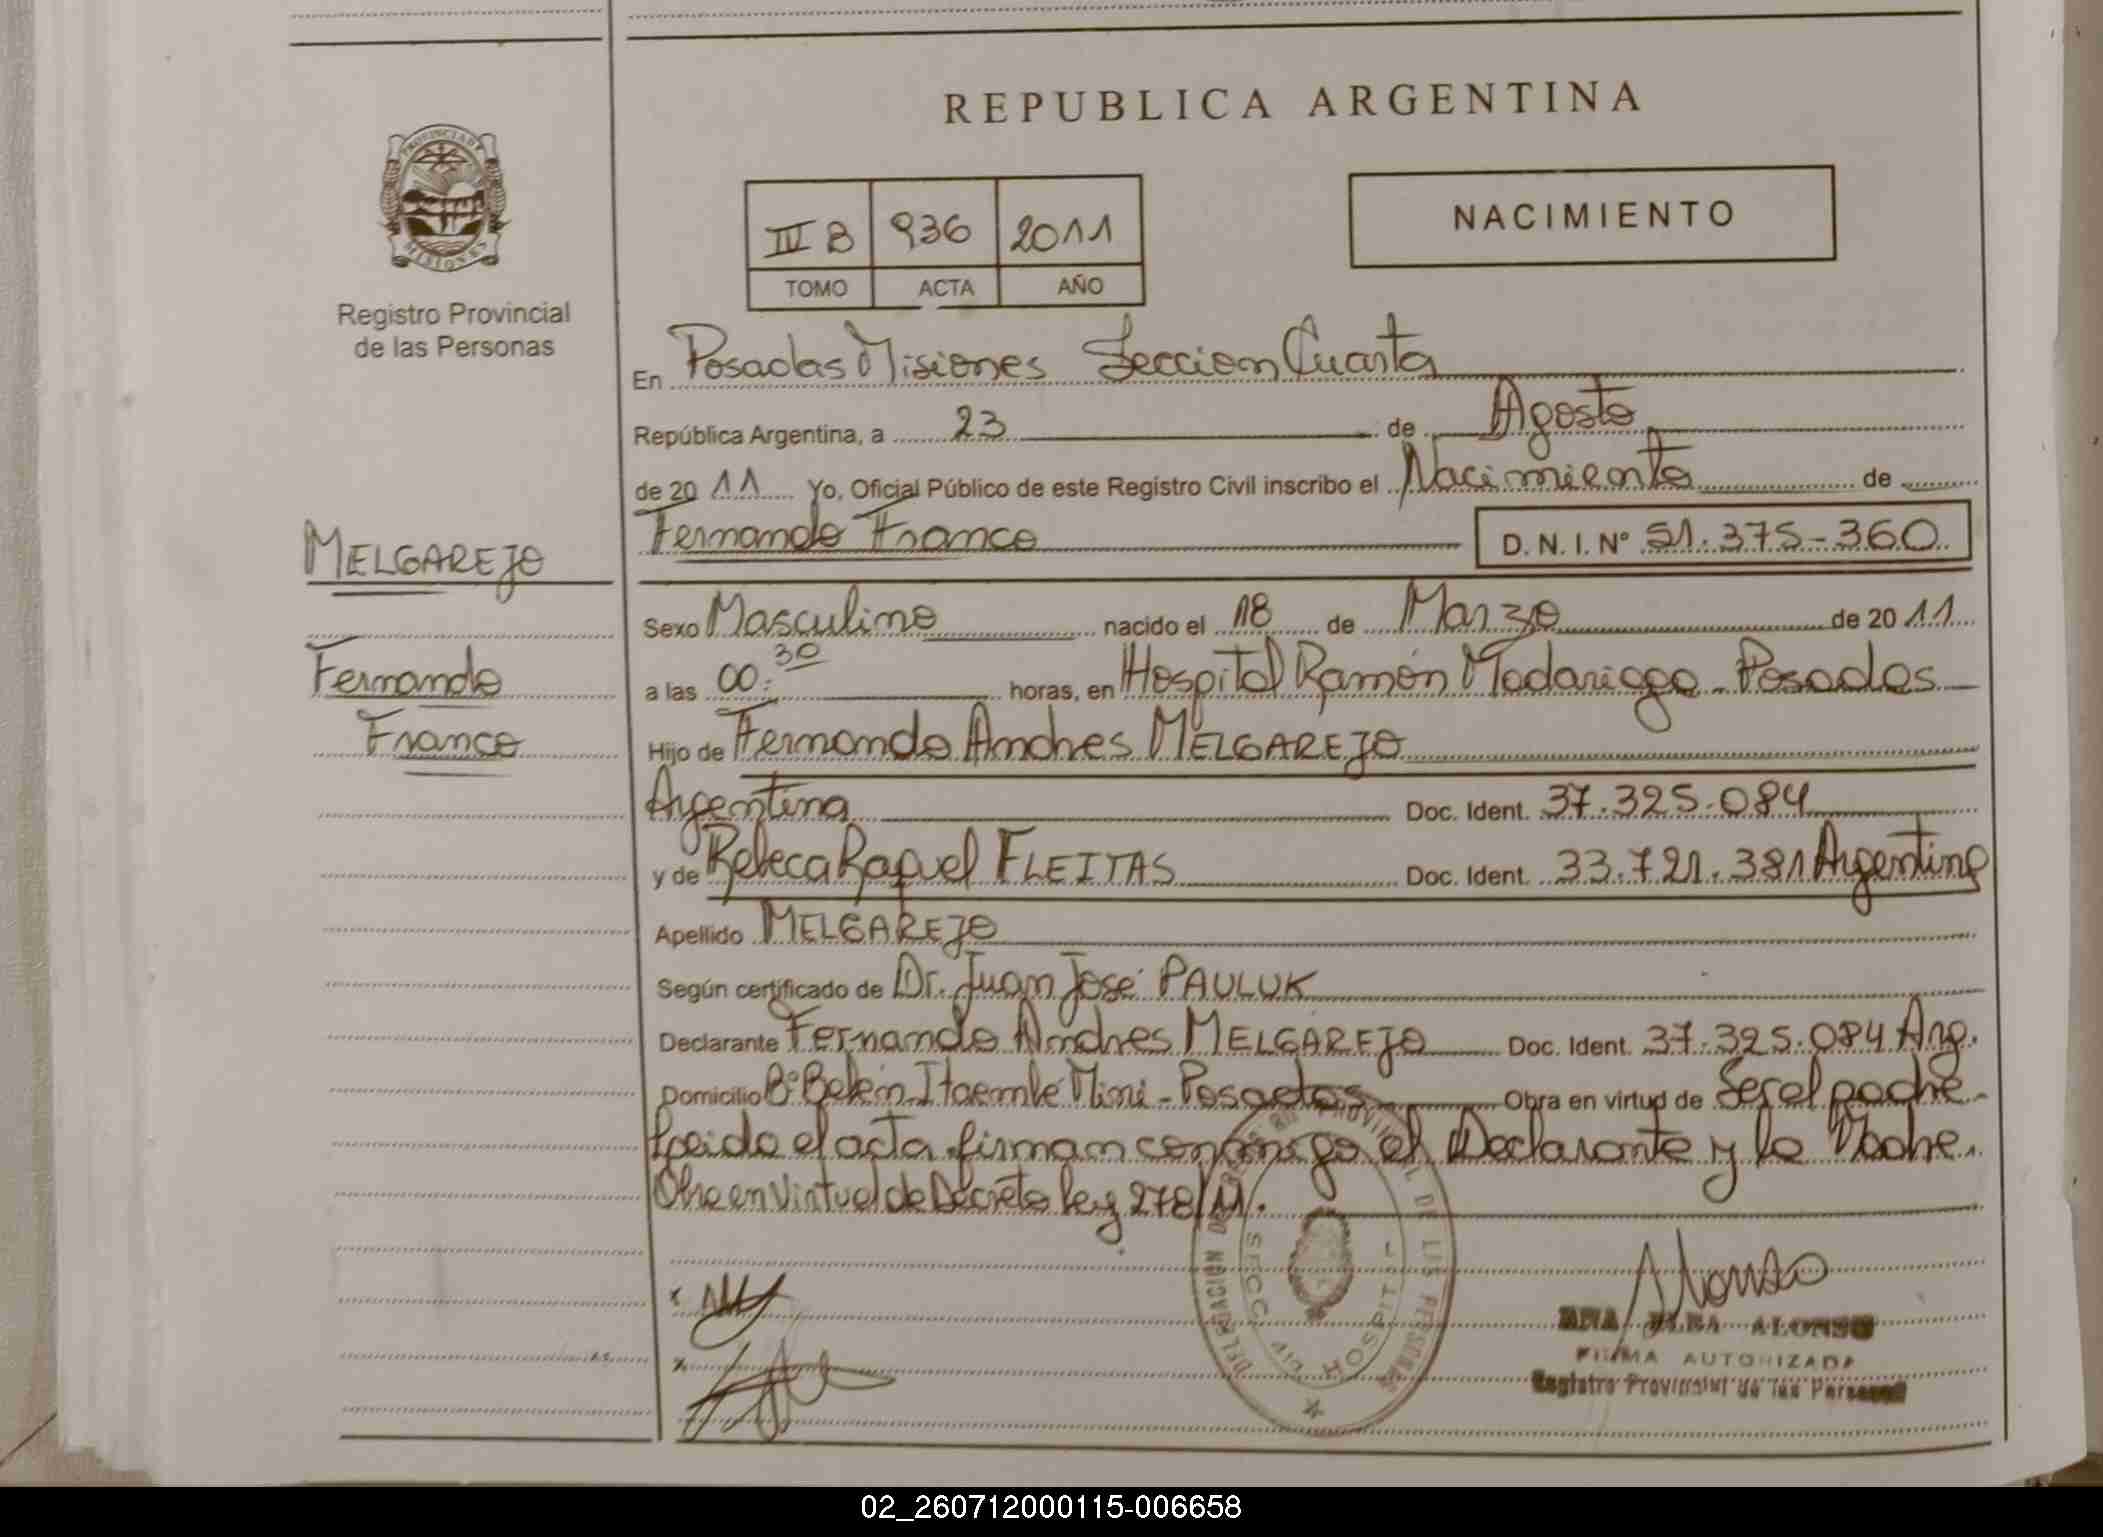 REPUBLICA ARGENTINA
PROVINCIA DE MISIONES
Registro Provincial
de las Personas
III B 936 2011
TOMO ACTA AÑO
NACIMIENTO
En Posadas Misiones Seccion Cuarta
República Argentina, a 23 de Agosto
de 20 11 Yo, Oficial Público de este Registro Civil inscribo el Nacimiento de
Fernando Franco D.N.I. Nº 51.375-360
MELGAREJO
Fernando
Franco
Sexo Masculino nacido el 18 de Marzo de 20 11
a las 00:30 horas, en Hospital Ramón Madariaga - Posadas
Hijo de Fernando Andres MELGAREJO
Argentina Doc. Ident. 37.325.084
y de Rebeca Raquel FLEITAS Doc. Ident. 33.721.381 Argentina
Apellido MELGAREJO
Según certificado de Dr. Juan José PAULUK
Declarante Fernando Andres MELGAREJO Doc. Ident. 37.325.084 Arg.
Domicilio Bº Belén Itaembé Miní - Posadas Obra en virtud de Ser el padre.
Leido el acta firman conmigo el Declarante y la Madre.
Obra en Virtud de Decreto Ley 278/11.
Alonso
ELBA ALONSO
FIRMA AUTORIZADA
Registro Provincial de las Personas
02_260712000115-006658